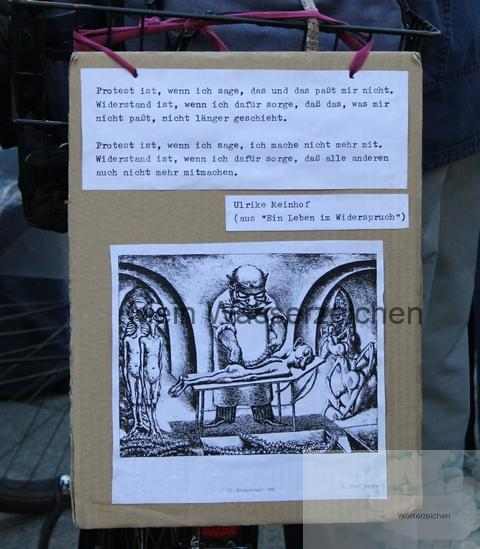 Protest ist, wenn ich sage, das und das paßt mir nicht.
Widerstand ist, wenn ich dafür sorge, daß das, was mir
nicht paßt, nicht länger geschieht.
Protest ist, wenn ich sage, ich mache nicht mehr mit.
Widerstand ist, wenn ich dafür sorge, daß alle anderen
auch nicht mehr mitmachen.
Ulrike Meinhof
(aus "Ein Leben im Widerspruch")
Wasserzeichen